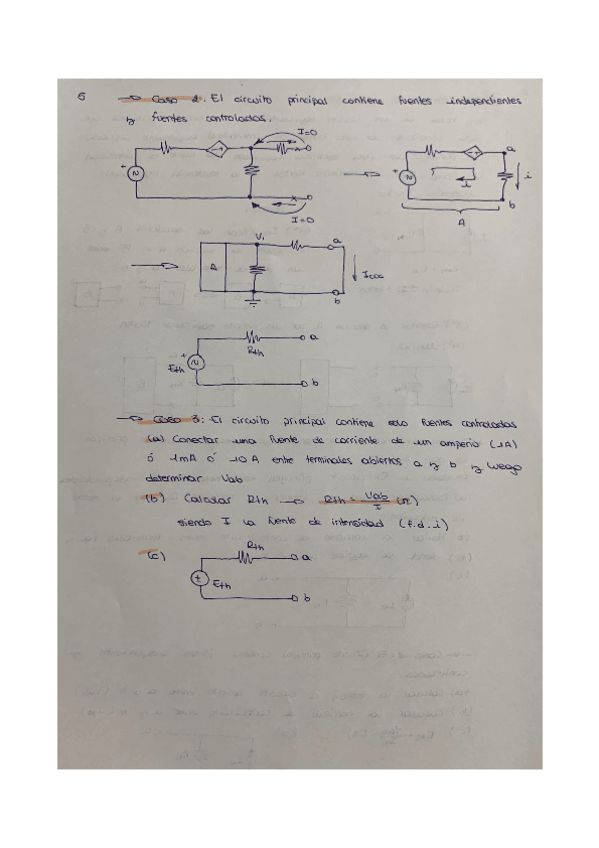 5
→ Caso 2: El circuito principal contiene fuentes independientes
y fuentes controladas.
I=0
I=0
a
i
i
b
A
V₁
a
A
Icoc
b
Rth
a
Eth
b
→ Caso 3: El circuito principal contiene solo fuentes controladas
(a) Conectar una fuente de corriente de un amperio (1A)
ó 1mA ó 10A entre terminales abiertos a y b y luego
determinar Vab
(b) Calcular Rth → Rth = Vab/I (Ω)
siendo I la fuente de intensidad (f.d.i)
(c)
Rth
a
Eth
b